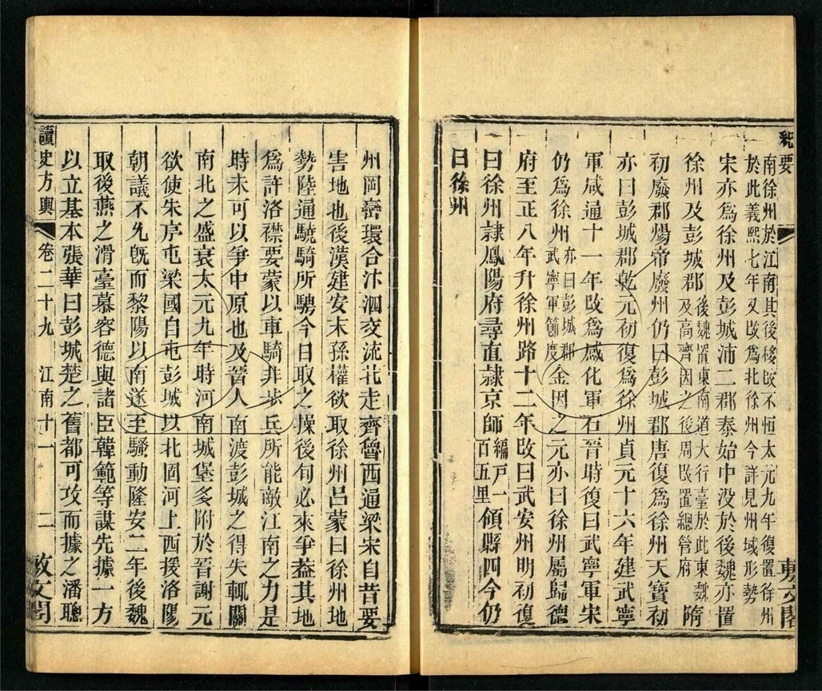 紀要
敷文閣
南徐州於江南其後移改不恒太元九年復置徐州
於此義熙七年又改爲北徐州今詳見州域形勢
宋亦爲徐州及彭城沛二郡泰始中没於後魏亦置
徐州及彭城郡後魏置東南道大行臺於此東魏及高齊因之後周改置總管府隋
初廢郡煬帝廢州仍曰彭城郡唐復爲徐州天寶初
亦曰彭城郡乾元初復爲徐州貞元十六年建武寧
軍咸通十一年改爲感化軍石晉時復曰武寧軍宋
仍爲徐州亦曰彭城郡武寧軍節度金因之元亦曰徐州屬歸德
府至正八年升徐州路十二年改曰武安州明初復
曰徐州隸鳳陽府尋直隸京師編戸一百五里領縣四今仍
曰徐州
州岡巒環合汴泗交流北走齊魯西通梁宋自昔要
害地也後漢建安末孫權欲取徐州呂蒙曰徐州地
勢陸通驍騎所騁今日取之操後旬必來爭蓋其地
爲許洛襟要蒙以車騎非步兵所能敵江南之力是
時未可以爭中原也及晉人南渡彭城之得失輒關
南北之盛衰太元九年時河南城堡多附於晉謝元
欲使朱序屯梁國自屯彭城以北固河上西援洛陽
朝議不允旣而黎陽以南遂至騷動隆安二年後魏
取後燕之滑臺慕容德與諸臣韓範等謀先據一方
以立基本張華曰彭城楚之舊都可攻而據之潘聰
讀史方輿 卷二十九 江南十一 二 敷文閣